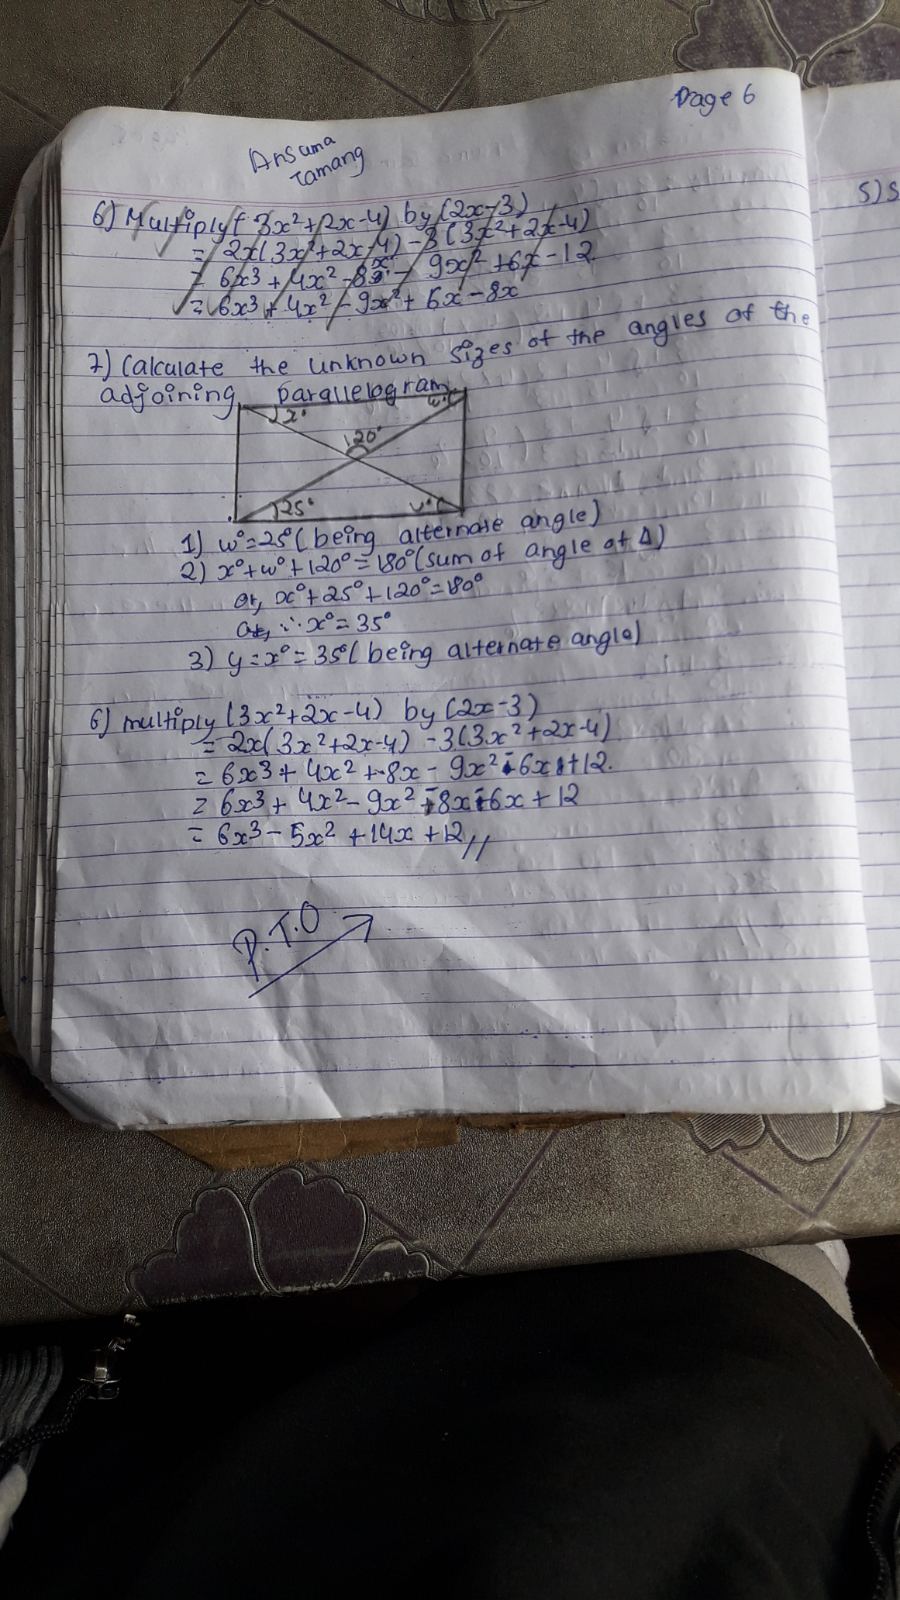 Page 6
Ansuma
Tamang
5) S
6) Multiply ( 3x²+2x-4) by (2x-3)
= 2x(3x²+2x-4) -3(3x²+2x-4)
= 6x3 + 4x² -8x - 9x² +6x -12
= 6x3 + 4x² - 9x²+ 6x -8x
7) Calculate the unknown sizes of the angles of the
adjoining parallelogram
x° w°
120°
25° y°
1) w°=25° (being alternate angle)
2) x°+w°+120°=180°(sum of angle of Δ)
or, x°+25°+120°=180°
∴ x°= 35°
3) y=x°= 35°( being alternate angle)
6) multiply (3x²+2x-4) by (2x-3)
= 2x(3x²+2x-4) -3(3x²+2x-4)
= 6x3 + 4x² +-8x - 9x² -6x +12.
= 6x3 + 4x²- 9x² -8x -6x + 12
= 6x3 - 5x² +14x +12//
P.T.O